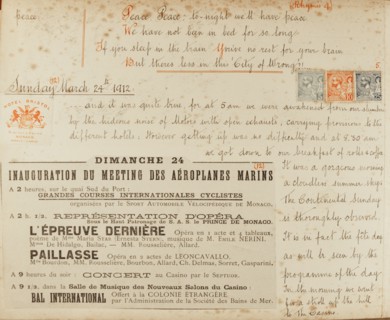 Peace, Peace: to-night we'll have peace
We have not lain in bed for so long
If you sleep in the train You've no rest for your brain
But there's less in this City of Wrong!!
Sunday March 24th 1912.
and it was quite true, for at 5 am we were awakened from our slumber
by the hideous noise of Motors with open exhausts, carrying provisions to the
different hotels. However getting up was no difficulty and at 8.30 am
we got down to our breakfast of rolls & coffee
HOTEL BRISTOL
DIMANCHE 24
INAUGURATION DU MEETING DES AÉROPLANES MARINS
A 2 heures, sur le quai Sud du Port
GRANDES COURSES INTERNATIONALES CYCLISTES
organisées par le Sport Automobile Vélocipédique de Monaco.
A 2 h. 1/2 REPRÉSENTATION D'OPÉRA
Sous le Haut Patronage de S. A. S. le PRINCE DE MONACO.
L'ÉPREUVE DERNIÈRE Opéra en 1 acte et 4 tableaux,
musique de M. EMILE NERINI.
MM. Rousselière, Allard.
PAILLASSE Opéra en 2 actes de LÉONCAVALLO.
A 9 heures du soir : CONCERT au Casino par le Septuor.
A 9 1/2 dans la Salle de Musique des Nouveaux Salons du Casino :
BAL INTERNATIONAL Offert à la COLONIE ÉTRANGÈRE
par l'Administration de la Société des Bains de Mer.
It was a gorgeous morning
a cloudless summer sky
The Continental Sunday
is thoroughly observed.
It is in fact the fête day
as will be seen by the
programme of the day
In the morning we went
for a stroll up the hill
to the Casino